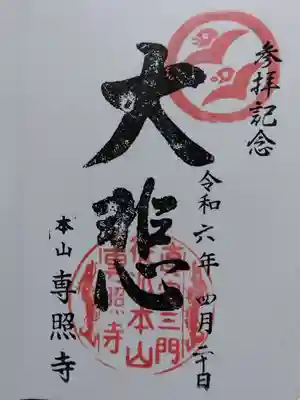 参拝記念
大悲
令和六年四月二十日
本山 専照寺
真宗三門
徒派本山
專照寺